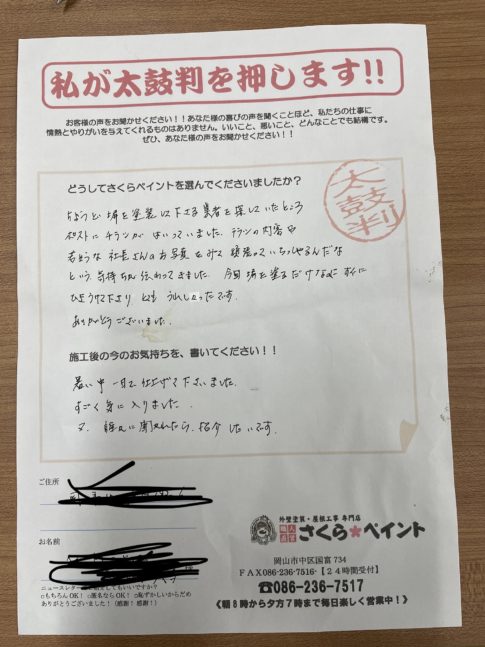 私が太鼓判を押します!!
お客様の声をお聞かせください!!あなた様の喜びの声を聞くことほど、私たちの仕事に
情熱とやりがいを与えてくれるものはありません。いいこと、悪いこと、どんなことでも結構です。
ぜひ、あなた様の声をお聞かせください!!
どうしてさくらペイントを選んでくださいましたか?
太鼓判
ちょうど塀を塗装して下さる業者を探していたところ
ポストにチラシがはいっていました。チラシの内容や
若そうな社長さんのお写真をみて頑張っていらっしゃるんだな
という気持ちが伝わってきました。今回塀を塗るだけなのに
下さり とても うれしかったです。
ありがとうございました。
施工後の今のお気持ちを、書いてください!!
暑い中 一日で仕上げて下さいました。
すごく気に入りました。
又、 聞かれたら、紹介したいです。
ご住所
お名前
ニュースレター
□もちろんOK! □匿名ならOK! □恥ずかしいからだめ
ありがとうございました!(感謝!感謝!)
外壁塗装・屋根工事 専門店
さくら★ペイント
岡山市中区国富734
FAX086-236-7516-【24時間受付】
☎086-236-7517
《朝8時から夕方7時まで毎日楽しく営業中!》